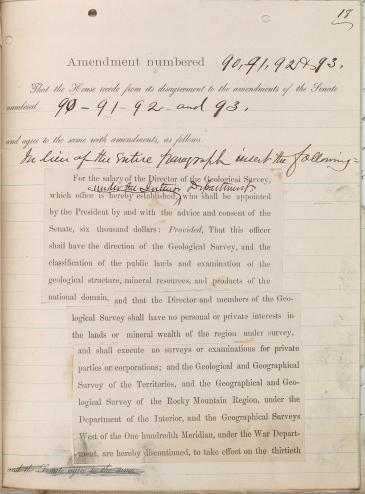 18
Amendment numbered 90, 91, 92 & 93.
That the House recede from its disagreement to the amendments of the Senate
numbered 90 - 91 - 92 - and 93.
and agree to the same with amendments, as follows:
In lieu of the entire paragraph insert the following =
For the salary of the Director of the Geological Survey,
under the Interior Department
which office is hereby established, who shall be appointed
by the President by and with the advice and consent of the
Senate, six thousand dollars: Provided, That this officer
shall have the direction of the Geological Survey, and the
classification of the public lands and examination of the
geological structure, mineral resources, and products of the
national domain, and that the Director and members of the Geo-
logical Survey shall have no personal or private interests in
the lands or mineral wealth of the region under survey,
and shall execute no surveys or examinations for private
parties or corporations; and the Geological and Geographical
Survey of the Territories, and the Geographical and Geo-
logical Survey of the Rocky Mountain Region, under the
Department of the Interior, and the Geographical Surveys
West of the One hundredth Meridian, under the War Depart-
ment, are hereby discontinued, to take effect on the thirtieth
and the Senate agree to the same